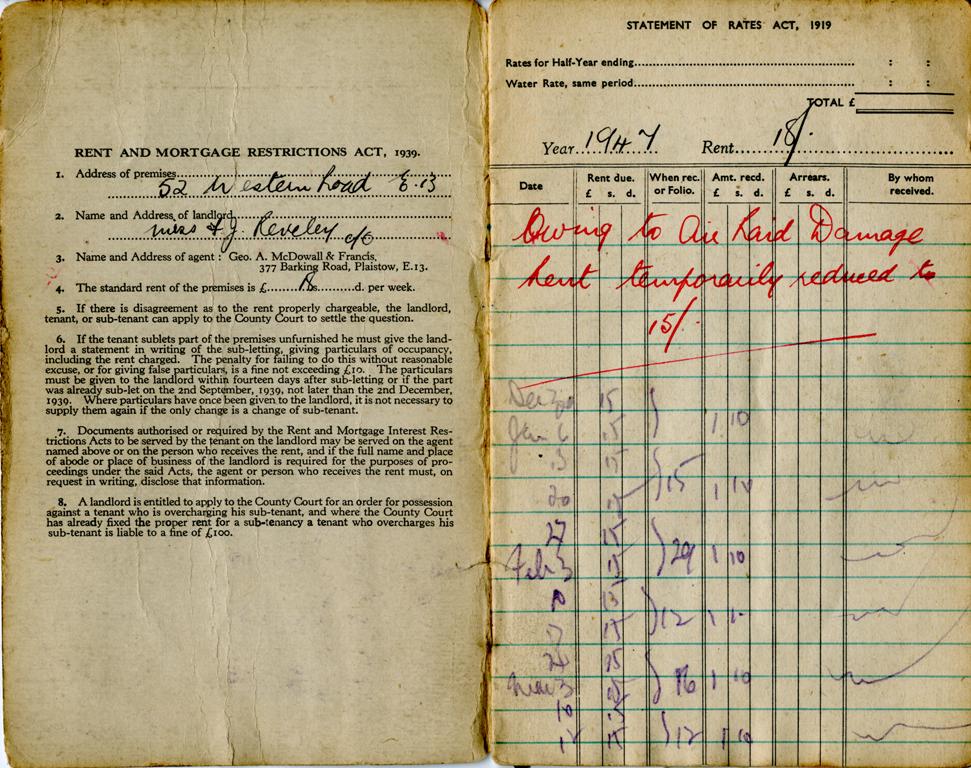 RENT AND MORTGAGE RESTRICTIONS ACT, 1939.
1. Address of premises
52 Western Road E.13
2. Name and Address of landlord
Miss J. Reveley c/o
3. Name and Address of agent : Geo. A. McDowall & Francis,
377 Barking Road, Plaistow, E.13.
4. The standard rent of the premises is £ 18 s. d. per week.
5. If there is disagreement as to the rent properly chargeable, the landlord,
tenant, or sub-tenant can apply to the County Court to settle the question.
6. If the tenant sublets part of the premises unfurnished he must give the land-
lord a statement in writing of the sub-letting, giving particulars of occupancy,
including the rent charged. The penalty for failing to do this without reasonable
excuse, or for giving false particulars, is a fine not exceeding £10. The particulars
must be given to the landlord within fourteen days after sub-letting or if the part
was already sub-let on the 2nd September, 1939, not later than the 2nd December,
1939. Where particulars have once been given to the landlord, it is not necessary to
supply them again if the only change is a change of sub-tenant.
7. Documents authorised or required by the Rent and Mortgage Interest Res-
trictions Acts to be served by the tenant on the landlord may be served on the agent
named above or on the person who receives the rent, and if the full name and place
of abode or place of business of the landlord is required for the purposes of pro-
ceedings under the said Acts, the agent or person who receives the rent must, on
request in writing, disclose that information.
8. A landlord is entitled to apply to the County Court for an order for possession
against a tenant who is overcharging his sub-tenant, and where the County Court
has already fixed the proper rent for a sub-tenancy a tenant who overcharges his
sub-tenant is liable to a fine of £100.
STATEMENT OF RATES ACT, 1919
Rates for Half-Year ending : :
Water Rate, same period : :
TOTAL £
Year 1947 Rent 18/.
Date Rent due. £ s. d. When rec. or Folio. Amt. recd. £ s. d. Arrears. £ s. d. By whom received.
Owing to Air Raid Damage
Rent temporarily reduced to
15/.
Dec 30 15
Jan 6 15 1 10
13 15
20 15 15 1 10
27 15
Feb 3 15 29 1 10
10 15
17 15 12 1
24 15
Mar 3 15 1 10
10 15
17 15 12 1 10